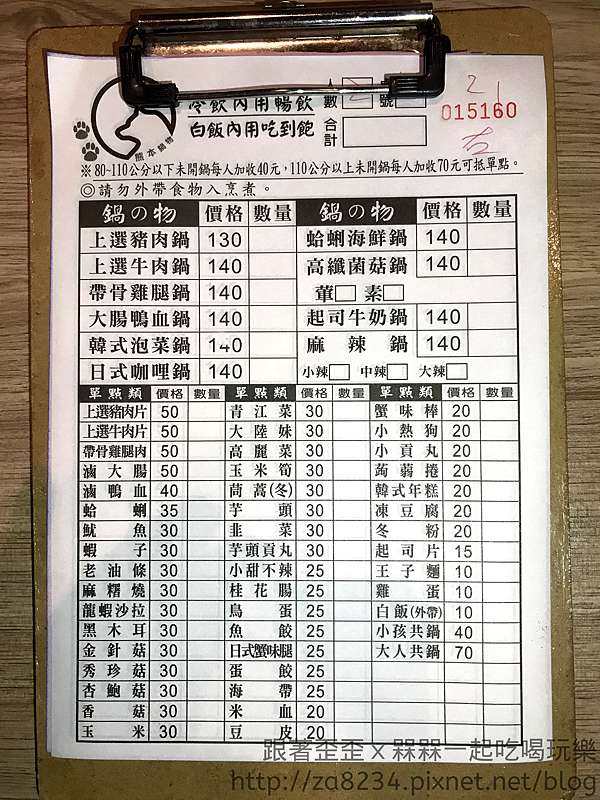 冷飲內用暢飲 人數 2 號 21
白飯內用吃到飽 合計 015160
熊本鍋物
※80~110公分以下未開鍋每人加收40元，110公分以上未開鍋每人加收70元可抵單點。
◎請勿外帶食物入烹煮。
鍋の物 價格 數量 鍋の物 價格 數量
上選豬肉鍋 130 蛤蜊海鮮鍋 140
上選牛肉鍋 140 高纖菌菇鍋 140
帶骨雞腿鍋 140 葷□ 素□
大腸鴨血鍋 140 起司牛奶鍋 140
韓式泡菜鍋 140 麻辣鍋 140
日式咖哩鍋 140 小辣□ 中辣□ 大辣□
單點類 價格 數量 單點類 價格 數量 單點類 價格 數量
上選豬肉片 50 青江菜 30 蟹味棒 20
上選牛肉片 50 大陸妹 30 小熱狗 20
帶骨雞腿肉 50 高麗菜 30 小貢丸 20
滷大腸 50 玉米筍 30 蒟蒻捲 20
滷鴨血 40 茼蒿(冬) 30 韓式年糕 20
蛤蜊 35 芋頭 30 凍豆腐 20
魷魚 30 韭菜 30 冬粉 20
蝦子 30 芋頭貢丸 30 起司片 15
老油條 30 小甜不辣 25 王子麵 10
麻糬燒 30 桂花腸 25 雞蛋 10
龍蝦沙拉 30 鳥蛋 25 白飯(外帶) 10
黑木耳 30 魚餃 25 小孩共鍋 40
金針菇 30 日式蟹味腿 25 大人共鍋 70
秀珍菇 30 蛋餃 25
杏鮑菇 30 海帶 25
香菇 30 米血 20
玉米 30 豆皮 20
跟著歪歪 x 槑槑一起吃喝玩樂
http://za8234.pixnet.net/blog